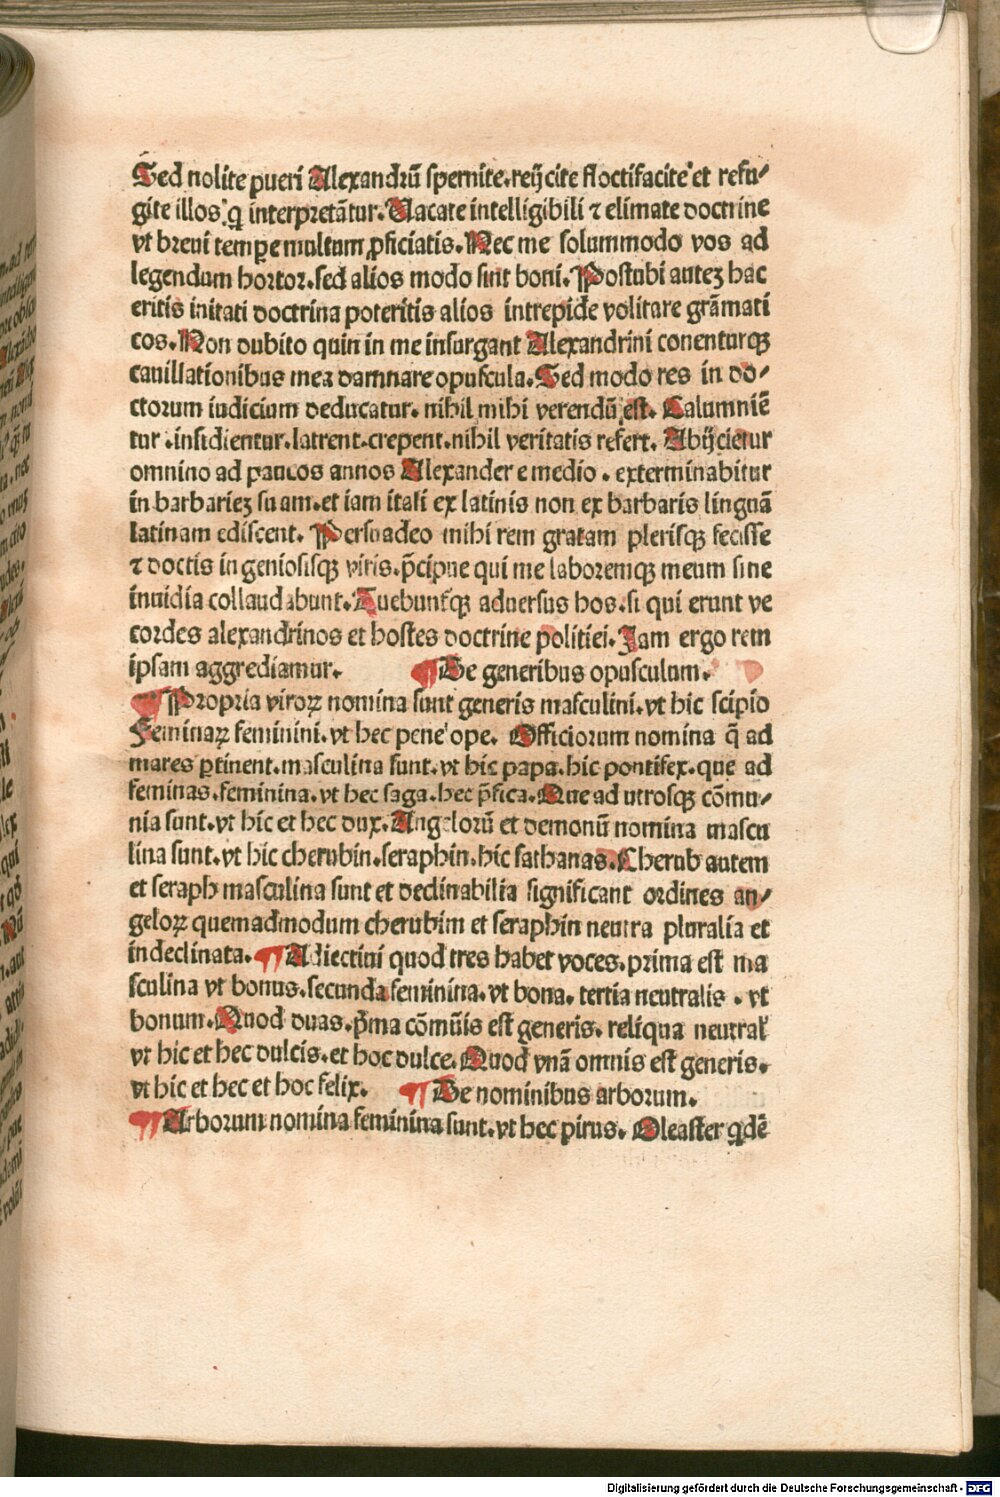 Sed nolite pueri Alexandrũ spernite.reijcite floctifacite et refu⸗
gite illos.q̨ interpretãtur.Uacate intelligibili ⁊ elimate doctrine
vt breui tempe multum ꝓficiatis.Nec me solummodo vos ad
legendum hortor.sed alios modo sint boni.Postubi autez hac
eritis initati doctrina poteritis alios intrepide volitare grãmati
cos.Non dubito quin in me insurgant Alexandrini conenturqꝫ
cauillationibus mea damnare opuscula.Sed modo res in do⸗
ctorum iudicium deducatur. nihil mihi verendũ est. Calumniẽ
tur.insidientur.latrent.crepent.nihil veritatis refert. Abijcietur
omnino ad paucos annos Alexander e medio. exterminabitur
in barbariez suam.et iam itali ex latinis non ex barbaris linguã
latinam ediscent. Persuadeo mihi rem gratam plerisqꝫ fecisse
⁊ doctis ingeniosisqꝫ viris.p̃cipue qui me laboremqꝫ meum sine
inuidia collaudabunt.Tuebuntqꝫ aduersus hos.si qui erunt ve
cordes alexandrinos et hostes doctrine politiei.Jam ergo rem
ipsam aggrediamur. ¶De generibus opusculum.
¶Propria viroꝝ nomina sunt generis masculini.vt hic scipio
Feminaꝝ feminini.vt hec pene'ope. Officiorum nomina q̃ ad
mares ꝑtinent.masculina sunt.vt hic papa.hic pontifex.que ad
feminas.feminina.vt hec saga.hec p̃fica.Que ad utrosqꝫ cõmu⸗
nia sunt.vt hic et hec dux.Angelorũ et demonũ nomina mascu
lina sunt.vt hic cherubin.seraphin.hic sathanas.Cherub autem
et seraph masculina sunt et declinabilia significant ordines an⸗
geloꝝ quemadmodum cherubim et seraphin neutra pluralia et
indeclinata.¶Adiectiui quod tres habet voces.prima est ma
sculina vt bonus.secunda feminina.vt bona. tertia neutralis. vt
bonum.Quod duas.p̃ma cõmũis est generis. reliqua neutral'
vt hic et hec dulcis.et hoc dulce.Quod vnã omnis est generis.
vt hic et hec et hoc felix. ¶De nominibus arborum.
¶Arborum nomina feminina sunt.vt hec pirus. Oleaster q̨dẽ
Digitalisierung gefördert durch die Deutsche Forschungsgemeinschaft - DFG